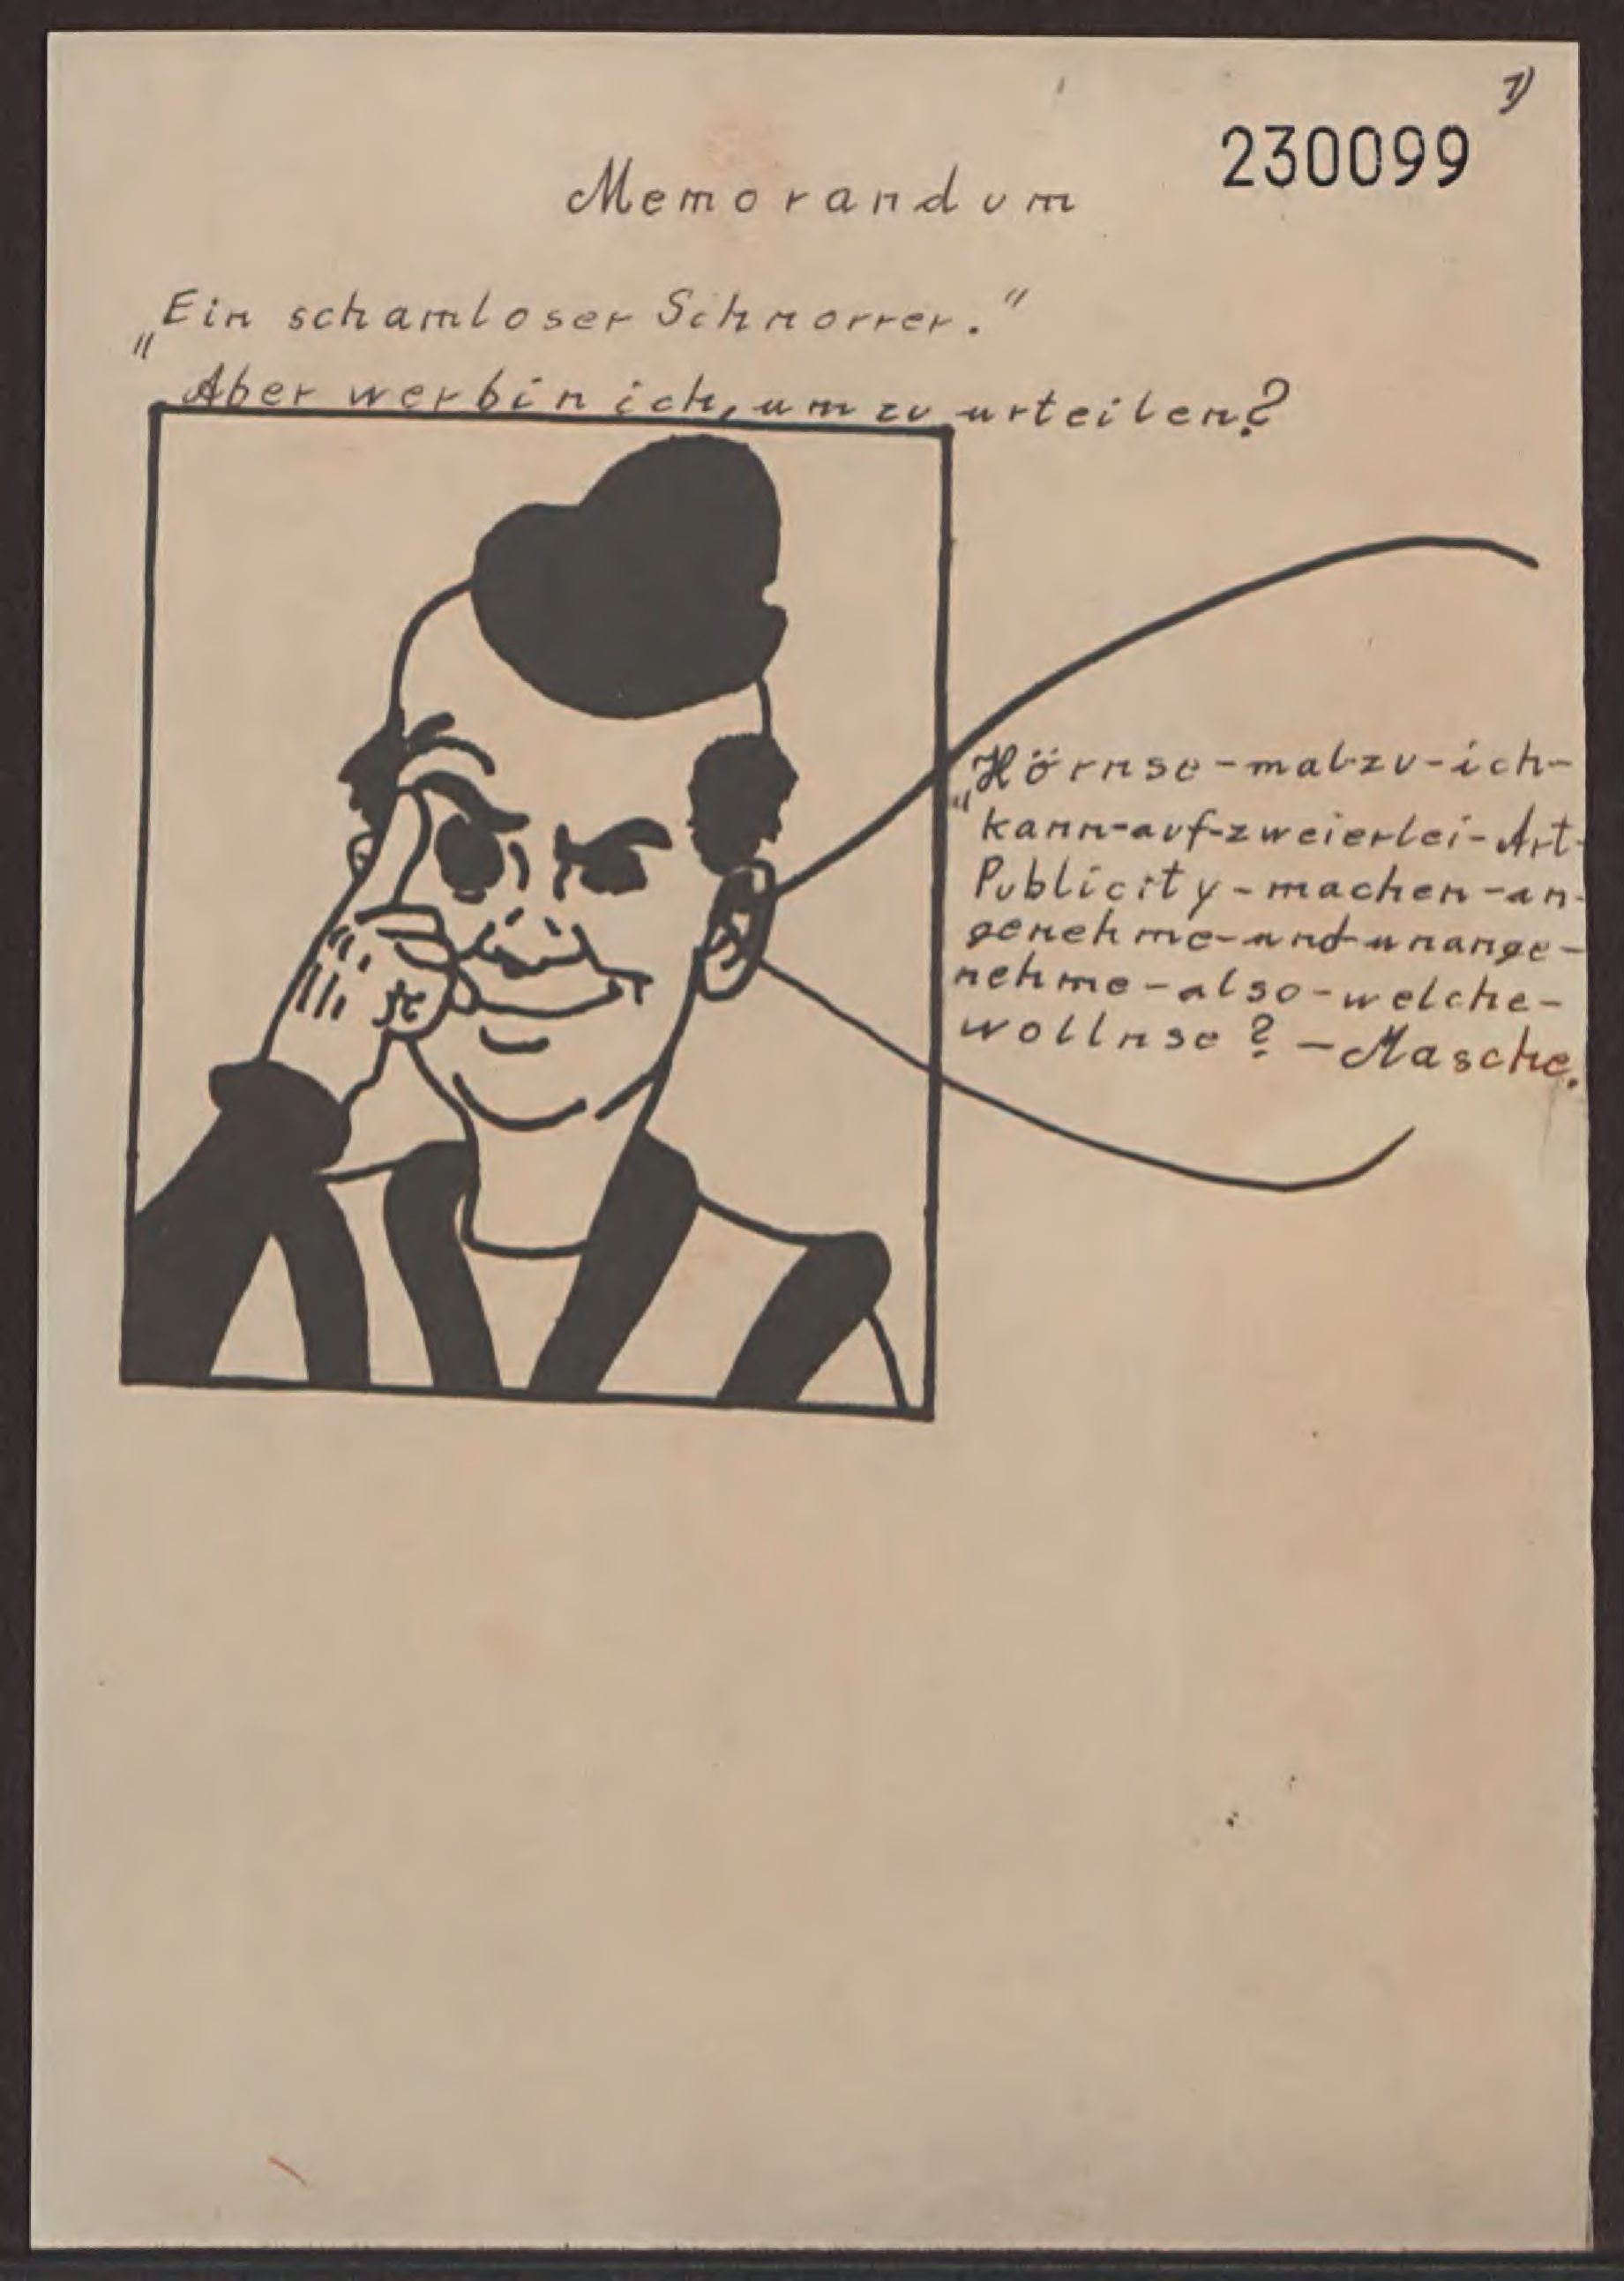 1)
230099
Memorandum
„Ein schamloser Schnorrer."
Aber wer bin ich, um zu urteilen?
„Hörnse-mal-zu-ich-
kann-auf-zweierlei-Art-
Publicity-machen-an-
genehme-und-unange-
nehme-also-welche-
wollnse? -Masche.